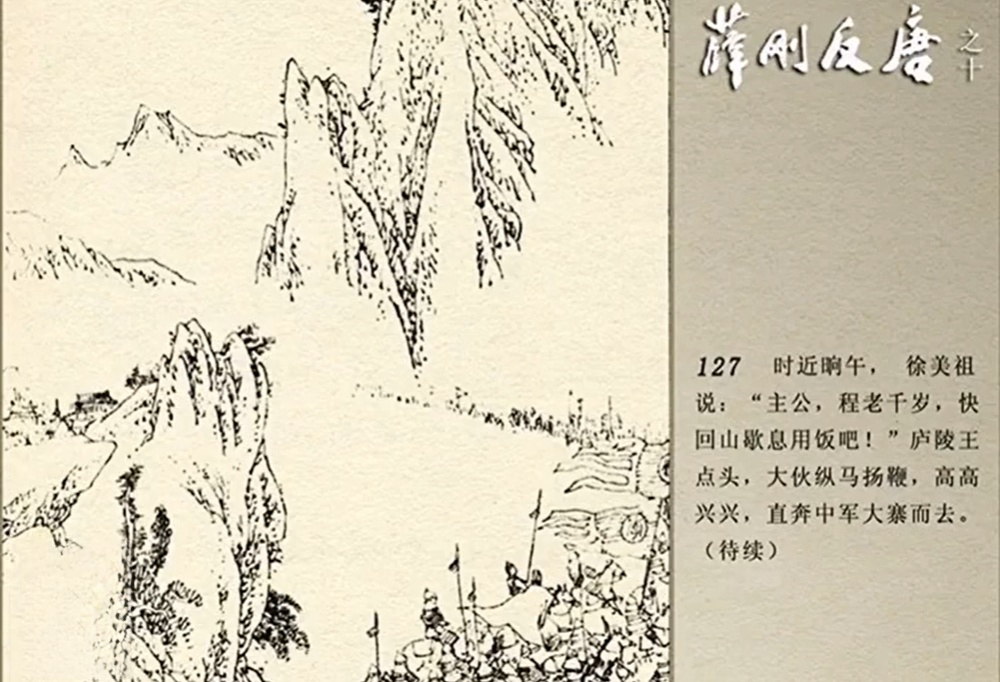 薛刚反唐 之十
127 时近晌午， 徐美祖
说：“主公，程老千岁，快
回山歇息用饭吧！”庐陵王
点头，大伙纵马扬鞭，高高
兴兴，直奔中军大寨而去。
（待续）